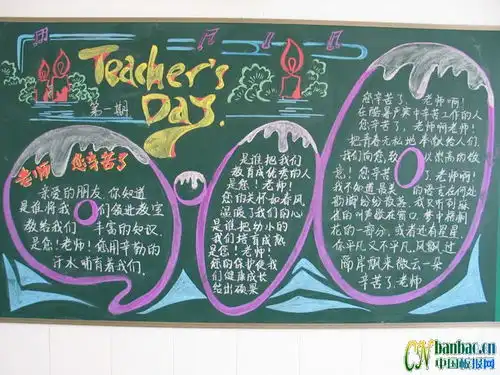 Teacher's
Day.
第一期
老师 您辛苦了
亲爱的朋友,你知道
是谁将我们领进教室
教给我们丰富的知识
是您!老师!您用辛勤的
汗水哺育着我们.
是谁把我们
教育成优秀的人
是您!老师!
您的关怀如春风
温暖了我们的心
是谁把幼小的
我们培育成熟
是您!老师!
您的保护使我
们健康成长
结出硕果
您辛苦了,老师啊!
在酷暑严寒中辛苦工作的人
您辛苦了,老师啊老师!
把青春无私地奉献给人们.
我们向您致以崇高的敬
意!您辛苦了,老师!
我不知道最美的语言在何处
雀的叫声
花的一部分,或者还有星星
你平凡又不平凡,风飘过
隔岸飘来微云一朵
辛苦了.老师
CN banbao.cn
中国板报网